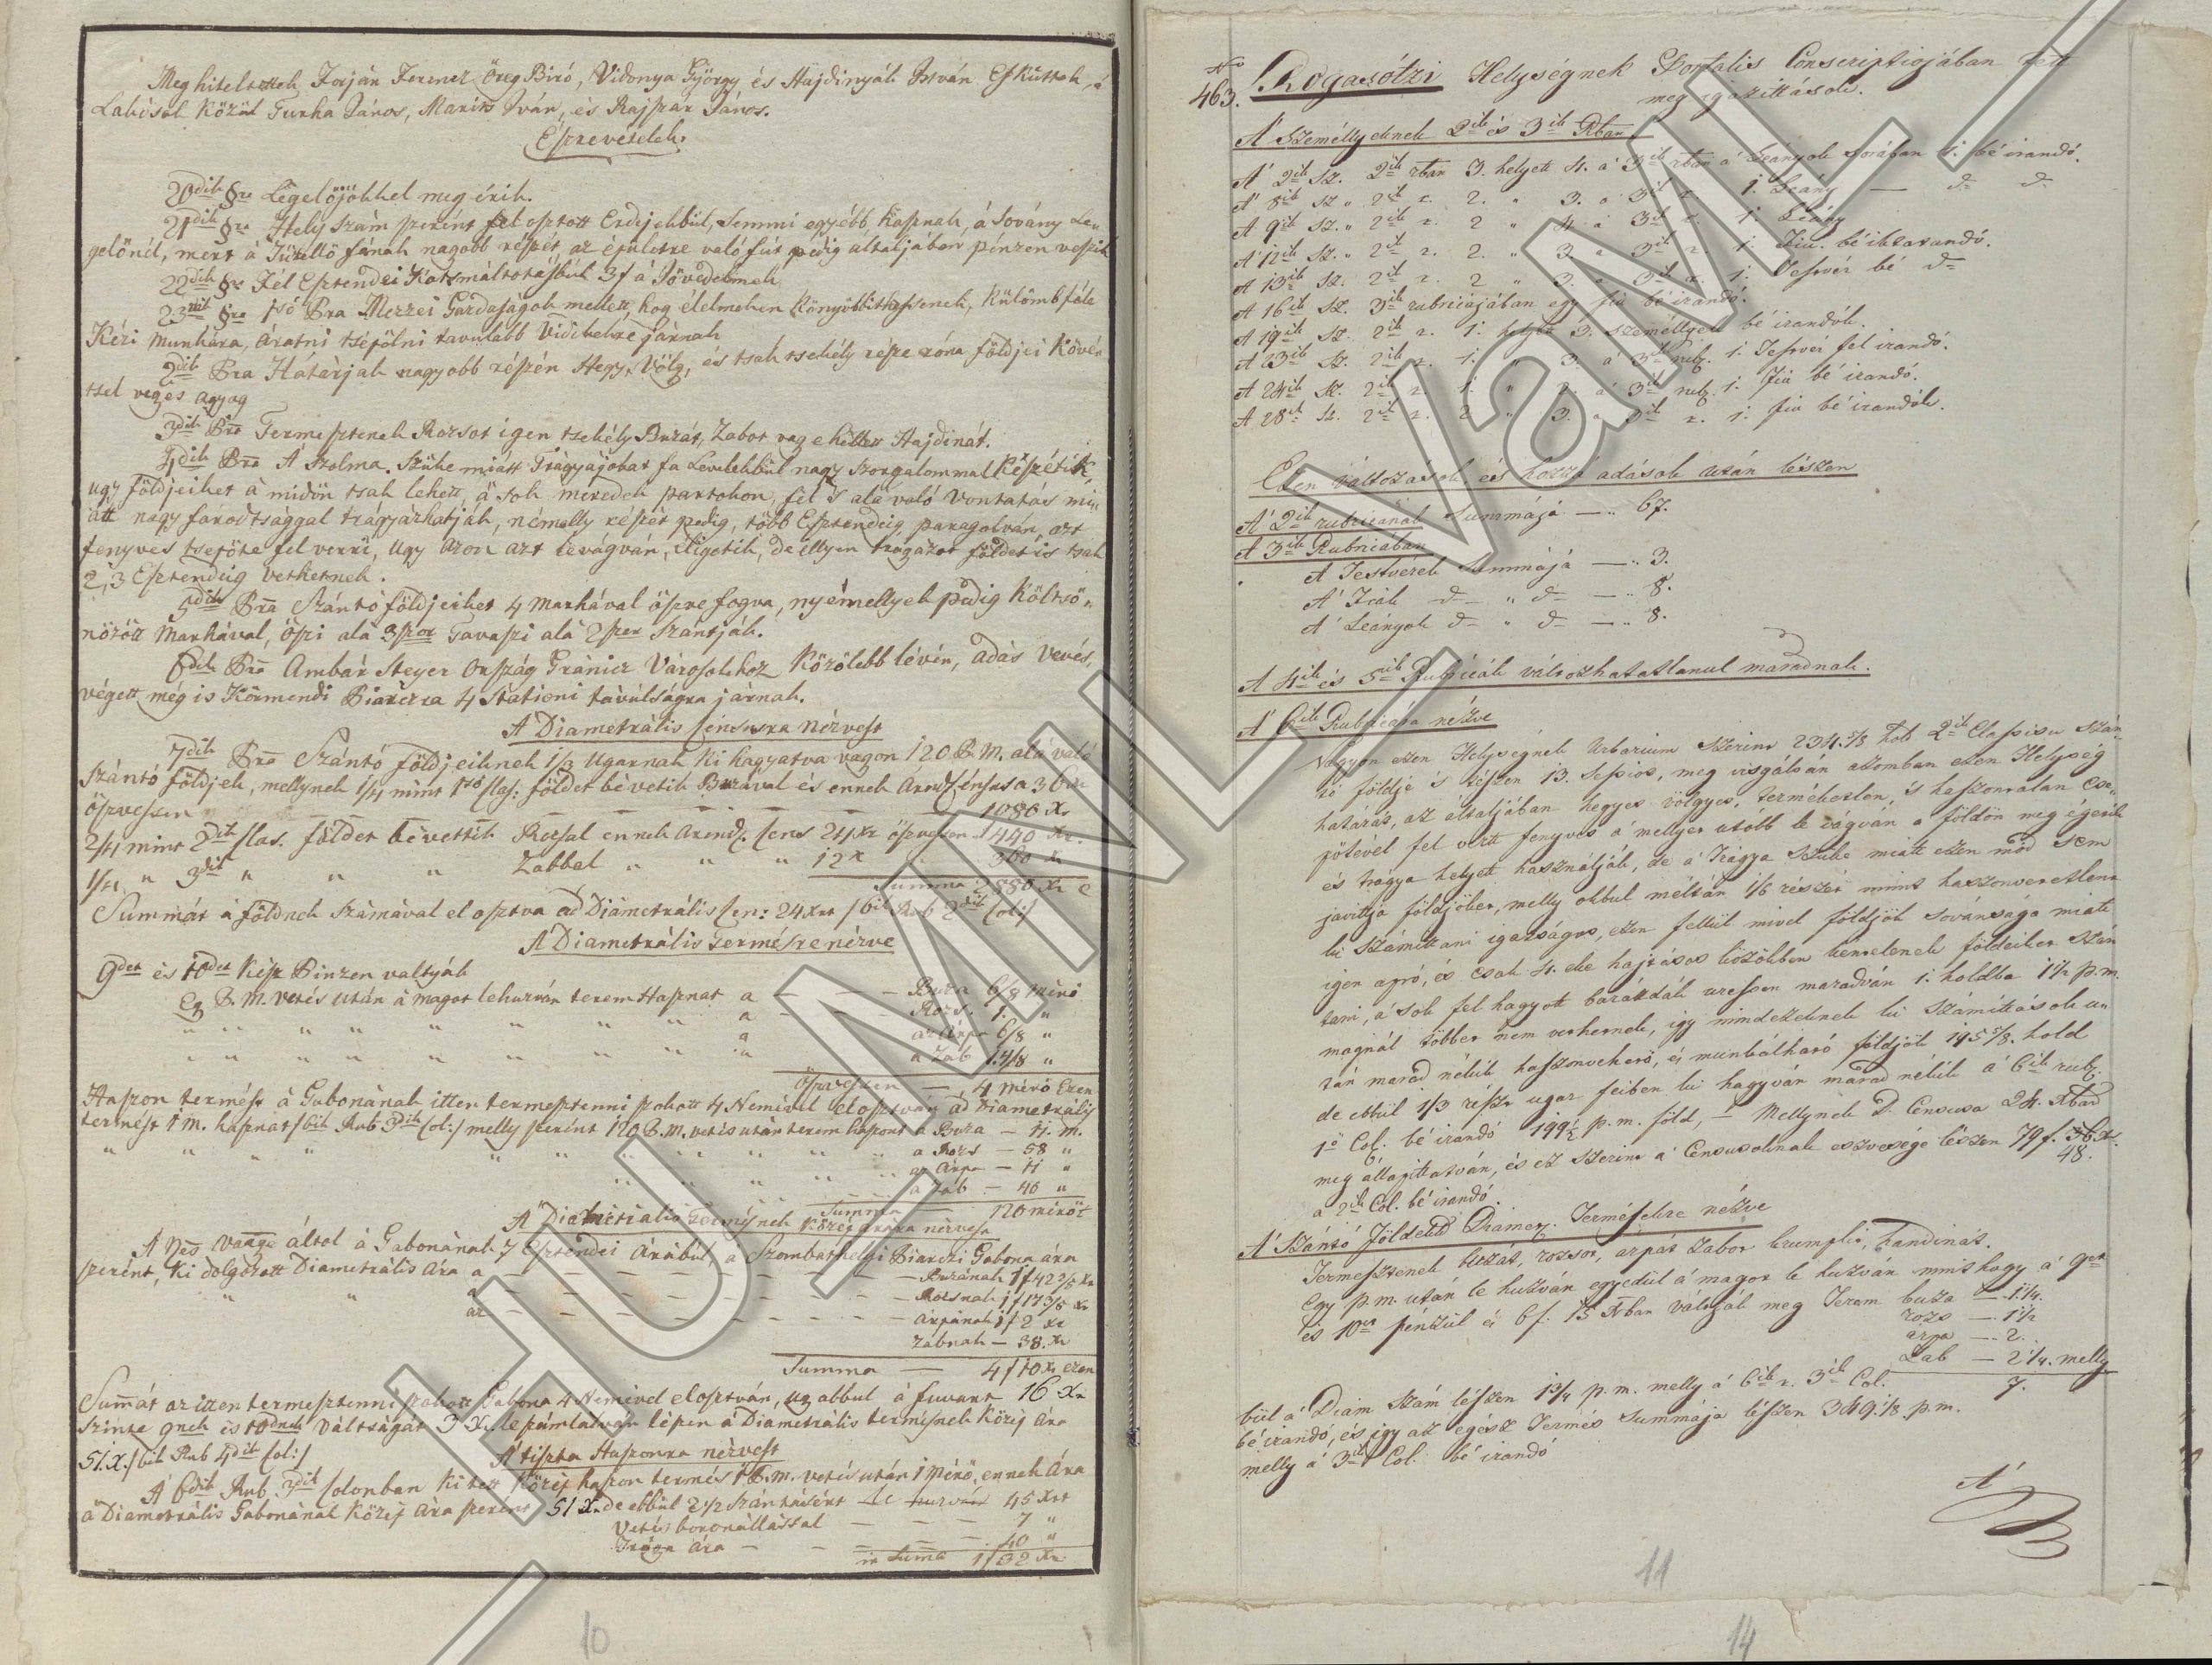 Meg hiteltettek Forján Ferencz Öreg Biró, Vidonya György és Hajdinyák István Esküttek, á
Lakósok Közül Turha János, Marits Iván, és Rajszar János.
Észrevételek.
20dik §ra Legelőjökkel meg érik.
21dik §ra Hely szám szerént fel osztott Erdejekbül, Semmi egyébb Hasznak, á Sovány Le„
gelőnél, mert á Tüzellő fának nagobb részét az épületre való fát pedig altaljában pénzen veszik
22dik §ra Fél Esztendei Kortsmáltotásbúl 3f á Jövedelmek
23dik §ra 1ső Pra Mezzei Gazdaságok mellett, hog élelmeken Könyöbbitthessenek, Külömbféle
Kézi Munkára, Aratni tsépölni tavulabb Vidikekre járnak
2dik Pra Határjak nagyobb részén Hegy, Völg, és tsak tsekély része róna földjei Kövé„
tsel veges agyag
3dik Pra Termesztenek Rozsot igen tsekély Buzát, Zabot vag e hellett Hajdinát.
4dik Pra Á Szolma Szüke miatt Trágyájokat fa Levelekbül nagy szorgalommal Készétik,
ugy földjeiket á midőn tsak lehett, á sok meredek partokon, fel s alá való Vontatás mi„
att nagy faradtsággal trágyázhatják, némelly részét pedig, több Esztendeig paragolván, azt
fenyves tserőte fel verri, Ugy azon azt levágván, Éligetik, de illyen trágázot földet is tsak
2, 3 Esztendeig vethetnek.
5dik Pra Szántó földjeiket 4 Markával öszve fogva, nyémellyek pedig Költsö„
nözött Markával, Őszi alá 3szor Tavaszi alá 2szer Szántják.
6dik Pra Ambár Steyer Ország Gránicz Városokhoz Közölebb lévén, adás vevés,
végett még is Körmendi Piarczra 4 Stationi távúlságra járnak.
A Diametrális Censusra Nézvest
7dik Pra Szántó földjeiknek 1/3 Ugarnak Ki hagyatva vagon 120 P.M. alá való
Szántó földjek, mellynek 1/4 mint 1ső Clas: földet bévetik Buzával és ennek Arend. Census a 36 xr
öszvessen — 1080 Xr
2/4 mint 2dik Clas. földet bévettik Rozsal ennek Arend. Cens 24 Xr öszvessen 1440 Xr.
1/4 „ 3dik „ „ „ Zabbal „ „ „ 12 X 360 Xr
Summa 2880 Xr e
Summát á földnek Számával el osztva ad Diametrális Cen: 24 Xrt /6ik Rub 2dik Col:/
A Diametrális Termésre nézve
9det és 10det Kész Pinzen valtyák
Eg P. M. vetés után á magot lehuzván terem Hasznat a — Buza 6/8 mérő
„ „ „ „ „ „ „ „ a — Rozs. 1. „
„ „ „ „ „ „ „ „ a az Árpa 6/8 „
„ „ „ „ „ „ „ „ a a Zab 1.4/8 „
öszvessen — 4 mérő Ezen
Haszon termést á Gabonának itten termesztenni szokott 4 Nemivel elosztván ad Diametrális
termést 1 M. hasznat /6ik Rub 3dik Col:/ melly szerént 120 P.M. vetés után terem haszont a Buza — 11. m.
„ „ „ „ a Rozs — 58 „
az Árpa — 11 „
a Zab — 40 „
Summa — 120 mérőt
A Diametrialis Termésnek Közép árára nézvest
A Nes vármge áltol á Gabonának 7 Esztendei Arábúl, á Szombathelyi Piarczi Gabona ára
szerént, ki dolgozott Diametrális ára a — Buzának 1f 42 3/8 Xr
„ „ a — Rozsnak 1f 17 3/8 Xr
az — Árpának 1f 2 Xr
Zabnak — 38. Xr
Summa — 4f 40 Xr ezen
Summát az izen termesztenni szokott Gabona 4 Nemivel elosztván, ug abbul á fuvart 16 Xr
szinte 9nek és 10dnek Váltságát 3 Xr. leszámlatván lészen á Diametrális termésnek Közép Ara
51. X. /6ik Rub 4dik Col:/
A tiszta Haszonra nézvest
A 6dik Rub 3dik Colonban Ki tett Közép haszon termés 1 P.m. vetés után 1 Mérő, ennek Ára
á Diametrális Gabonának Közép Ára szerént 51 X. de ebbül 2 1/2 szántásért le huzván 45 Xrt
Vetés boronállással — 7 „
Trágya Ára — 40 „
in Suma 1f 32 Xr.
10
Nro
463. Rogasótzi Helységnek Portalis Conscriptiojában Tett
meg igazittások.
A Személlyeknek 2ik és 3ik Rban
A' 2ik Sz. 2ik rban 3. helyett 4. á 3ik rban á Leányok sorában 1. bé irandó.
A' 8ik Sz „ 2ik r. 2. „ 3. á 3ik r. 1. Leány — d= d=
A 9ik Sz. „ 2ik r. 2 „ 4. á 3ik r. 1. Leány
A' 12ik Sz. „ 2ik r. 2. „ 3. á 3ik r. 1. Fiú. bé iktatandó.
A 13ik Sz. 2ik r. 2 „ 3. á 3ik r. 1. Testvér bé d=
A 16ik Sz. 3ik rubricajában egy fiú bé irandó.
A 19ik Sz. 2ik r. 1. helyett 3. személlyek bé irandók.
A 23ik Sz. 2ik r. 1. „ 3. á 3ik rub. 1. Testvér fel irandó.
A 24ik Sz. 2ik r. 1. „ 2. á 3ik rub. 1. Fiú bé irandó.
A 28ik Sz. 2ik r. 2 „ 3. á 3ik r. 1. fiú bé irandók.
Ezen változások és hozzá adások után lészen
A' 2ik rubricának Summája — „ 67.
A 3ik Rubricában
A Testvérek Summája — „ 3.
A' Fiak d= „ d= — „ 8.
A' Leányok d= „ d= — „ 8.
A 4ik és 5ik Rubricák változhatatlanul maradnak.
A' 6ik Rubricára nézve
Vagyon ezen Helységnek Urbarium Szerint 234.5/8 hold 2ik Classisu Szán„
tó földje s lészen 13. Sessios, meg visgálván azomban ezen Helység
határát, az általjában hegyes völgyes, terméketlen, és haszontalan Cse„
pötével fel vertt fenyves á mellyet utóbb le vágván a földön meg égetik
és trágya helyett használják, de á Trágya Szüke miatt ezen mód sem
javittja földjöket, melly okbul méltán 1/6 részét mint haszonvehetlent
ki számittani igazságos, ezen fellül mivel földjök soványsága miatt
igen apró, és csak 4. eke hajtásos közökben kéntelenek földeiket Szán
tani, á sok fel hagyott barázdák üressen maradván 1. holdba 1 1/2 p.m.
magnál többet nem vethetnek, igy mindezeknek ki számittások u„
tán marad nékik haszonvehető, és munkálható földjök 195 5/8. hold
de ebbül 1/3 része ugar feiben ki hagyván marad nékik á 6ik rub.
1ső Col. bé irandó 199 1/2 p.m. föld, — Mellynek D. Census 24. Xban
meg állapittatván, és ez szerint a' Censusoknak eszvessége lészen 79 f. 36 x.
48.
a 2ik Col. bé irandó.
A' Szántó Földekk Diamet. Terméseire nézve
Termesztenek buzát, rozsot, arpát zabot krumplit, handinát.
Egy p.m. után le huzván egyedül á magot le huzván minthogy á 9et
és 10et pénzül és 6f. 15 Xban váltják meg Terem buza — 1 1/4.
rozs — 1 1/2
arpa — „ 2.
Zab — 2 1/4. melly
7.
bül a' Diam Szám lészen 1 3/4 p.m. melly á 6ik r. 3ik Col.
bé irandó, és igy az egész Termés Summája lészen 349.1/8 p.m.
melly á 3ik Col. bé irandó
A'
11
14
HU MNL VaML